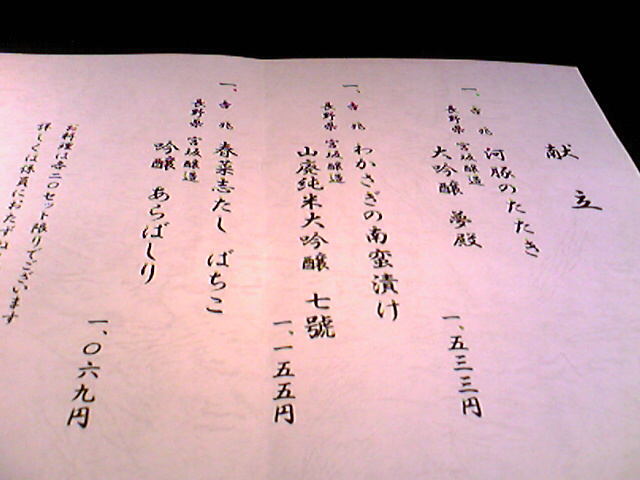 献立
一、吉兆 河豚のたたき
長野県 宮坂醸造
大吟醸 夢殿
一、五三三円
一、吉兆 わかさぎの南蛮漬け
長野県 宮坂醸造
山廃純米大吟醸 七號
一、一五五円
一、吉兆 春菜志たし ばちこ
長野県 宮坂醸造
吟醸 あらばしり
一、〇六九円
お料理は各二〇セット限りでございます
詳しくは係員におたずね